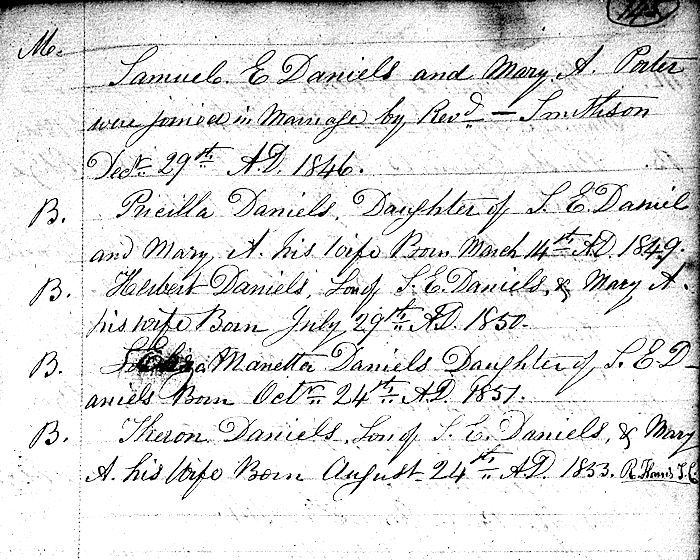 145
M. Samuel E Daniels and Mary A. Porter
were joined in Marriage by Revd — Smithson
Decr 29th A.D. 1846.
B. Pricilla Daniels, Daughter of S. E Daniels
and Mary A. his wife Born March 14th A.D. 1849.
B. Herbert Daniels, Son of S. E. Daniels, & Mary A.
his wife Born July 29th A.D. 1850.
B. Manetta Daniels Daughter of S. E. D-
aniels Born Octr 24th A.D. 1851.
B. Theron Daniels Son of S. E. Daniels, & Mary
A. his Wife Born August 24th A.D. 1853.